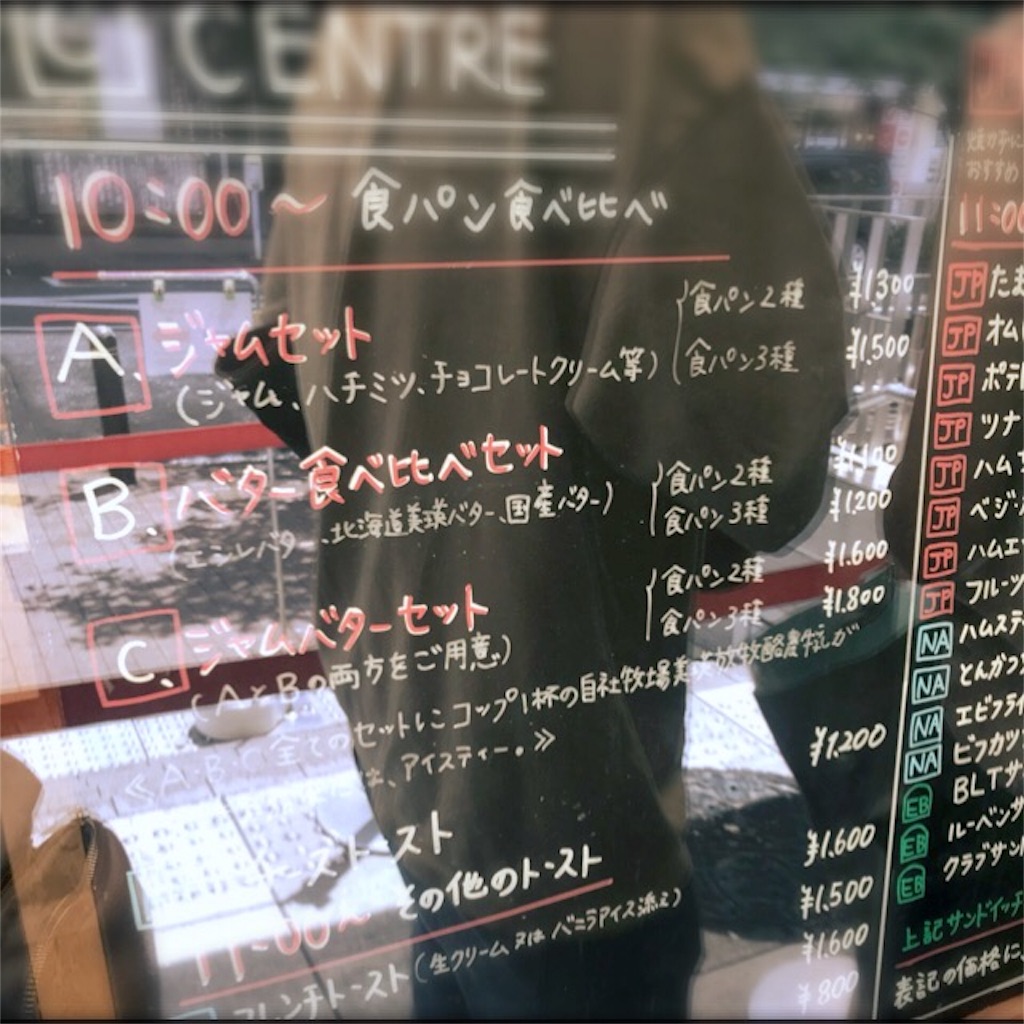 CENTRE
10:00〜 食パン食べ比べ
A. ジャムセット
(ジャム、ハチミツ、チョコレートクリーム等)
食パン2種 ¥1,300
食パン3種 ¥1,500
B. バター食べ比べセット
(エシレバター、北海道美瑛バター、国産バター)
食パン2種 ¥1,100
食パン3種 ¥1,200
C. ジャムバターセット
(AとBの両方をご用意)
食パン2種 ¥1.600
食パン3種 ¥1.800
《A.B.C全てのセットにコップ1杯の自社牧場 放牧酪農牛乳が
アイスティー。》
¥1.200
スト
11:00〜 その他のトースト
¥1.600
フレンチトースト(生クリーム又はバニラアイス添え)
¥1.500
¥1.600
¥800
おすすめ
11:00
JP たま
JP オム
JP ポテ
JP ツナ
JP ハム
JP ベジ
JP ハムエ
JP フルーツ
NA ハムステ
NA とんかつ
NA エビフライ
NA ビフカツ
EB BLTサ
EB ルーベンサ
EB クラブサン
上記サンドイッチ
表記の価格に